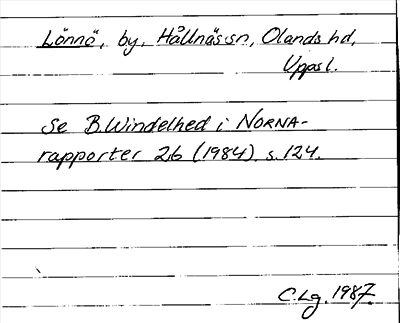 Lönnö, by, Hållnäs sn, Olands hd,
Uppsl.
Se B. Windelhed i NORNA-
rapporter 26 (1984) s. 124.
C. Lg. 1987.